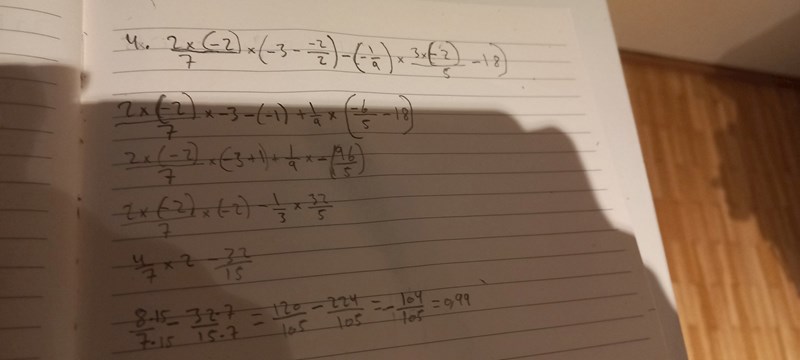 4. 2×(-2)/7 × (-3 - -2/2) - (-1/9) × 3×(-2)/5 - 18)
2×(-2)/7 × -3 - (-1) + 1/9 × (-6/5 - 18)
2×(-2)/7 × (-3+1) + 1/9 × -(96/5)
2×(-2)/7 × (-2) - 1/3 × 32/5
4/7 × 2 - 32/15
8·15/7·15 - 32·7/15·7 = 120/105 - 224/105 = -104/105 = 0,99